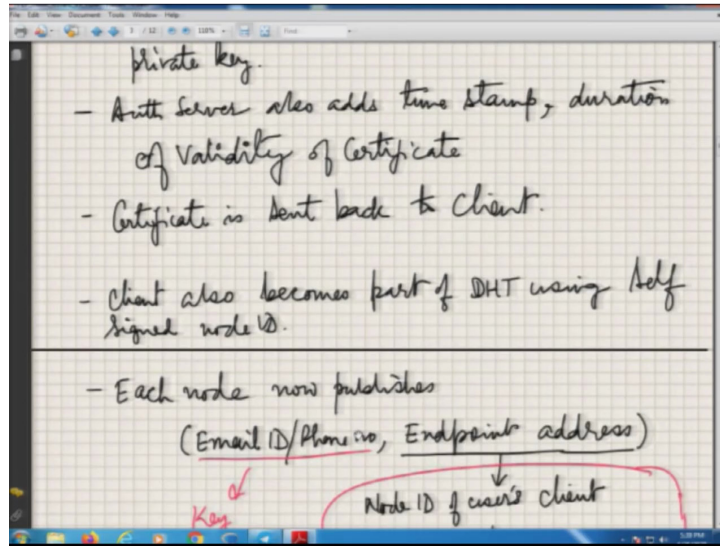 File Edit View Document Tools Window Help
3 / 12 118% Find
private key.
- Auth Server also adds time stamp, duration
of Validity of Certificate
- Certificate is sent back to Client.
- Client also becomes part of DHT using Self
Signed node ID.
- Each node now publishes
(Email ID/Phone no, Endpoint address)
Key
Node ID of user's client
5:09 PM